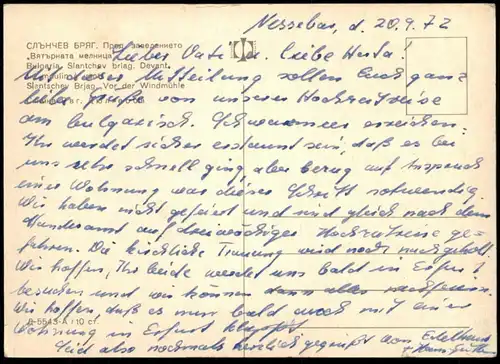 Nessebar, d. 20.9.72
СЛЪНЧЕВ БРЯГ. Пред заведението
„Вятърната мелница"
Bulgaria. Slantchev briag. Devant
Slantschev Brjag. Vor der Windmühle
Lieber Vater, liebe Herta.
Mit dieser Mitteilung sollen Euch ganz
liebe Grüße von unserer Hochzeitsreise
am bulgarisch. Schwarzmeer erreichen.
Ihr werdet sicher erstaunt sein, daß es bei
uns sehr schnell ging, aber bezug auf Anspruch
einer Wohnung war dieser Schritt notwendig.
Wir haben nicht gefeiert und sind gleich nach dem
Standesamt auf dreiwöchiger Hochzeitsreise ge-
fahren. Die kirchliche Trauung wird noch nachgeholt.
Wir hoffen, Ihr beide werdet uns bald in Erfurt
besuchen und wir können dann alles nachfeiern.
Wir hoffen, daß es nun bald auch mit einer
Д-5543-А 10 ст.
Wohnung in Erfurt klappt.
Seid also nochmals herzlich gegrüßt von